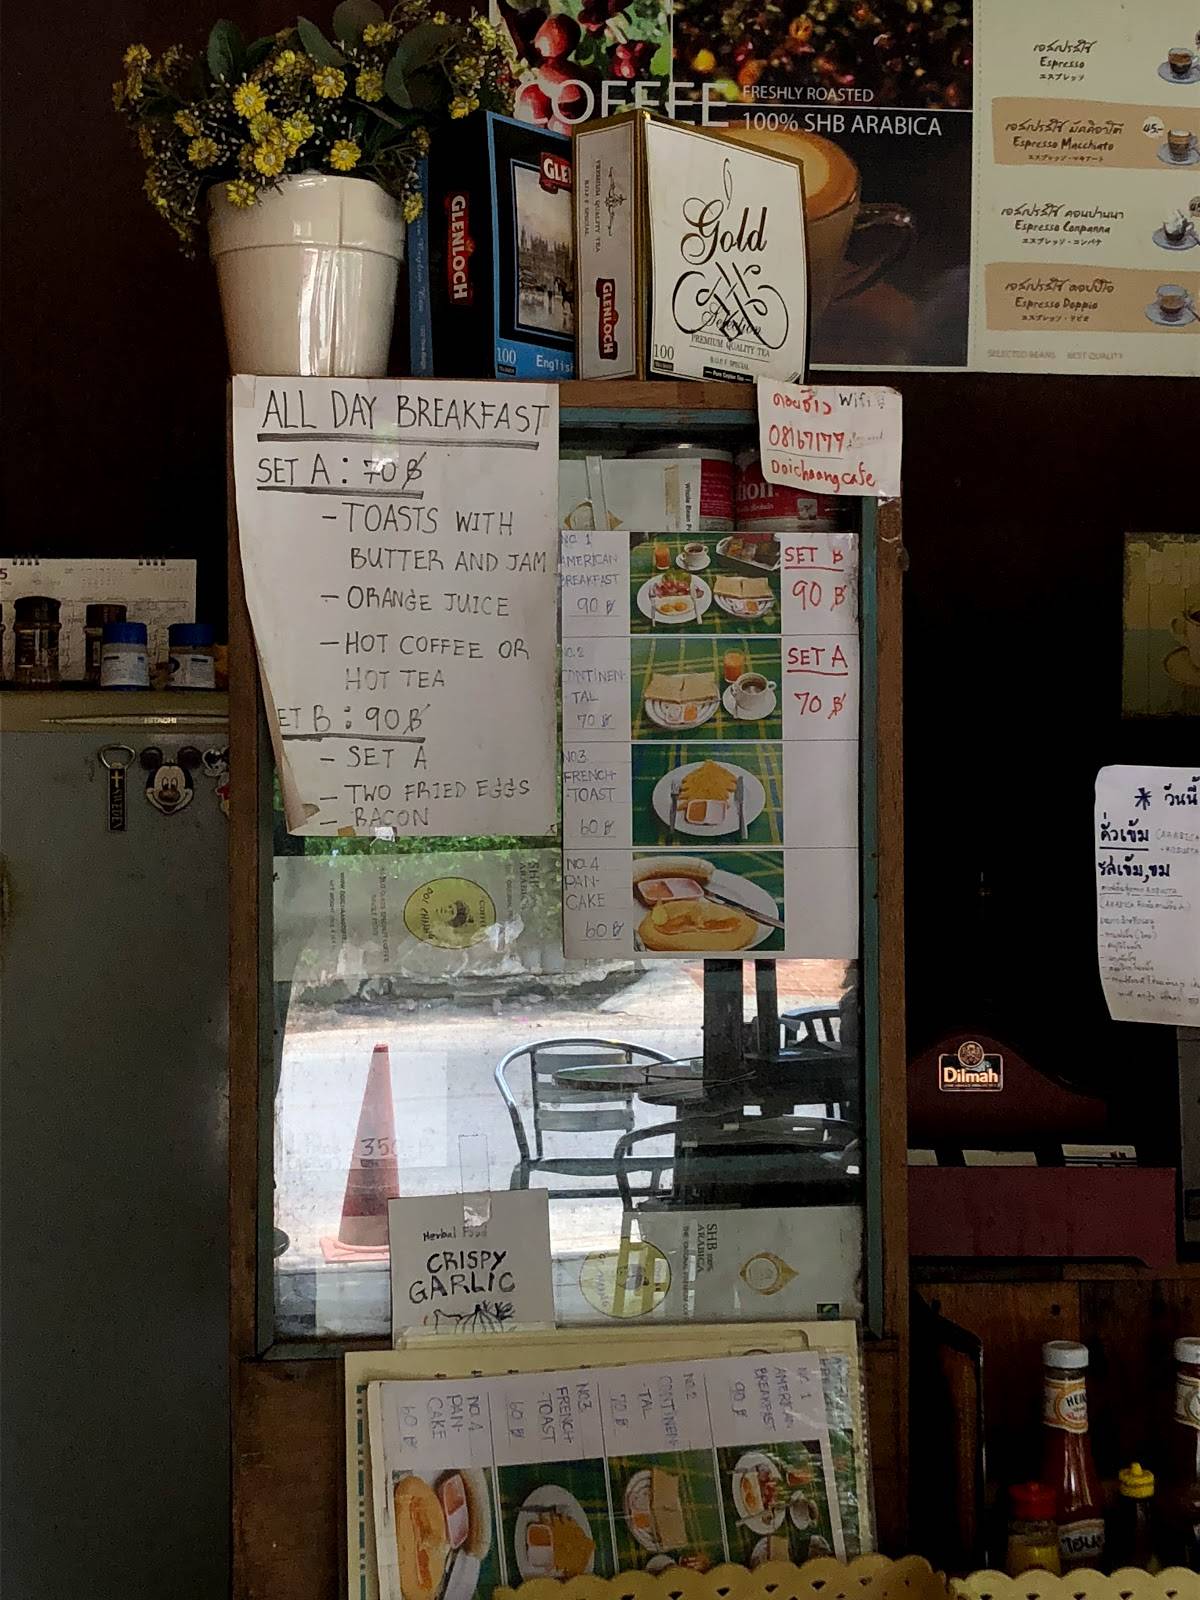 COFFEE
FRESHLY ROASTED
100% SHB ARABICA
เอสเปรสโซ่
Espresso
エスプレッソ
เอสเปรสโซ่ มัคคิอาโต้
Espresso Macchiato
エスプレッソ・マキアート
45.-
เอสเปรสโซ่ คอนปานนา
Espresso Conpanna
エスプレッソ・コンパナ
เอสเปรสโซ่ ดอปปิโอ
Espresso Doppio
エスプレッソ・ドピオ
SELECTED BEANS BEST QUALITY
GLENLOCH
GLE
100
English
PREMIUM QUALITY TEA
B.O.P.F SPECIAL
GLENLOCH
Gold
Selection
PREMIUM QUALITY TEA
B.O.P.F SPECIAL
100
Pure Ceylon Tea
ALL DAY BREAKFAST
SET A : 70 ฿
- TOASTS WITH
BUTTER AND JAM
- ORANGE JUICE
- HOT COFFEE OR
HOT TEA
ET B : 90 ฿
- SET A
- TWO FRIED EGGS
- BACON
ดอยช้าง Wifi
08167177
Doichaangcafe
NO. 1
AMERICAN
BREAKFAST
90 ฿
SET B
90 ฿
NO.2
CONTINEN-
TAL
70 ฿
SET A
70 ฿
NO.3
FRENCH-
TOAST
60 ฿
NO.4
PAN-
CAKE
60 ฿
HITACHI
SWEDEN
SHB
ARABICA
DOI CHAANG
COFFEE
350
Herbal Food
CRISPY
GARLIC
SHB 100%
ARABICA
Dilmah
* วันนี้
คั่วเข้ม
รสเข้ม,ขม
NO. 1
AMERICAN
BREAKFAST
90 ฿
NO.2
CONTINEN-
TAL
70 ฿
NO.3
FRENCH-
TOAST
60 ฿
NO.4
PAN-
CAKE
60 ฿
HEINZ